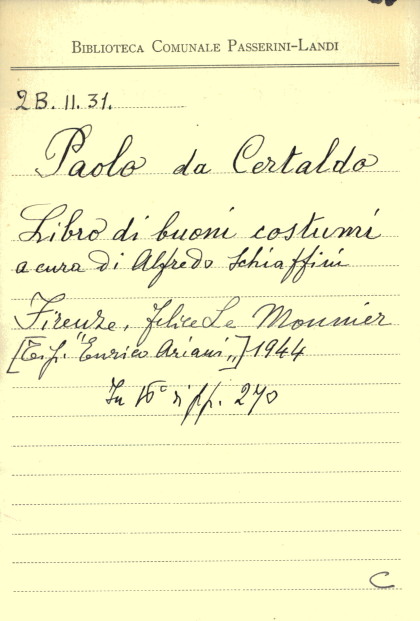 BIBLIOTECA COMUNALE PASSERINI-LANDI
2B. II. 31.
Paolo da Certaldo
Libro di buoni costumi
a cura di Alfredo Schiaffini
Firenze, Felice Le Monnier
[Tip. "Enrico Ariani„] 1944
In 16° di pp. 270
C